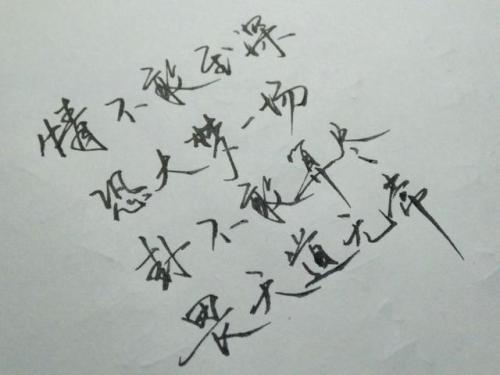 情不敢至深
恐大梦一场
卦不敢算尽
畏天道无常